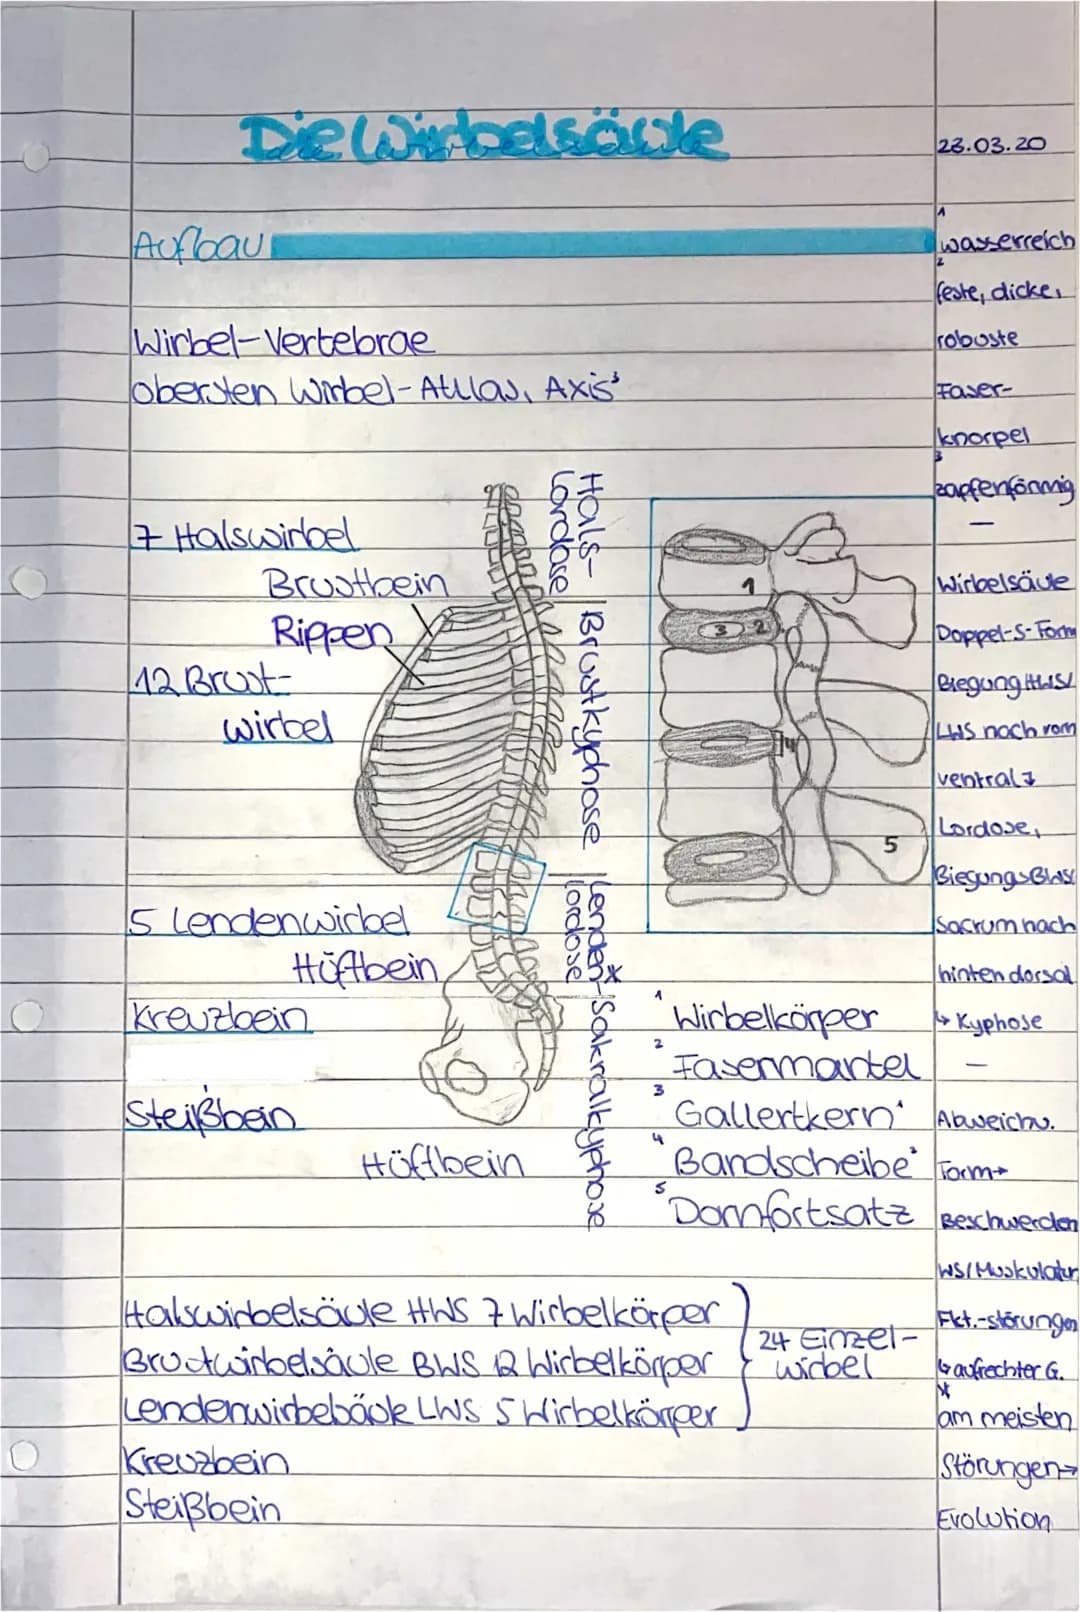 Die Wirbelsäule
23.03.20
Aufbau
Wirbel-Vertebrae
obersten Wirbel-Atlas, Axis³
7 Halswirbel
Brustbein
Rippen
12 Brust-
wirbel
5 Lendenwirbel
Hüftbein
Kreuzbein
Steißbein
Hüftbein
Hals-
lordose
Brustkyphose
Lenden-*
lordose
Sakralkyphose
1
3 2
4
5
¹ Wirbelkörper
² Fasermantel
³ Gallertkern¹
⁴ Bandscheibe²
⁵ Dornfortsatz
Halswirbelsäule HWS 7 Wirbelkörper
Brustwirbelsäule BWS 12 Wirbelkörper
Lendenwirbelsäule LWS 5 Wirbelkörper
24 Einzel-
wirbel
Kreuzbein
Steißbein
¹
wasserreich
²
feste, dicke,
robuste
Faser-
knorpel
³
zapfenförmig
—
Wirbelsäule
Doppel-S-Form
Biegung HWS/
LWS nach vorn
ventral →
Lordose,
Biegung BWS/
Sacrum nach
hinten dorsal
↳ Kyphose
—
Abweichu.
Form→
Beschwerden
WS/Muskulatur
Fkt.-störungen
↳ aufrechter G.
*
am meisten
Störungen→
Evolution